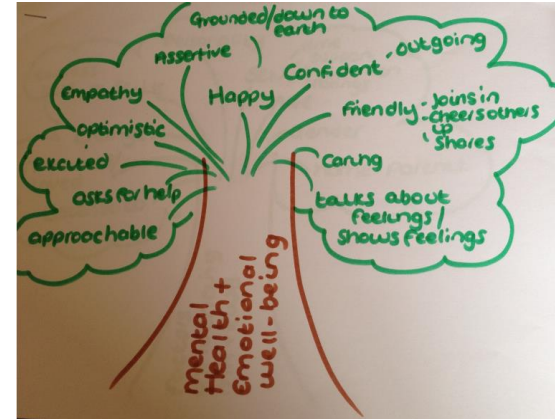 Grounded/down to
earth
Assertive
Confident
outgoing
Empathy
Happy
Friendly - Joins in
- cheers others
up
Shares
optimistic
excited
Caring
asks for help
talks about
feelings/
shows feelings
approachable
Mental
Health +
Emotional
well-being